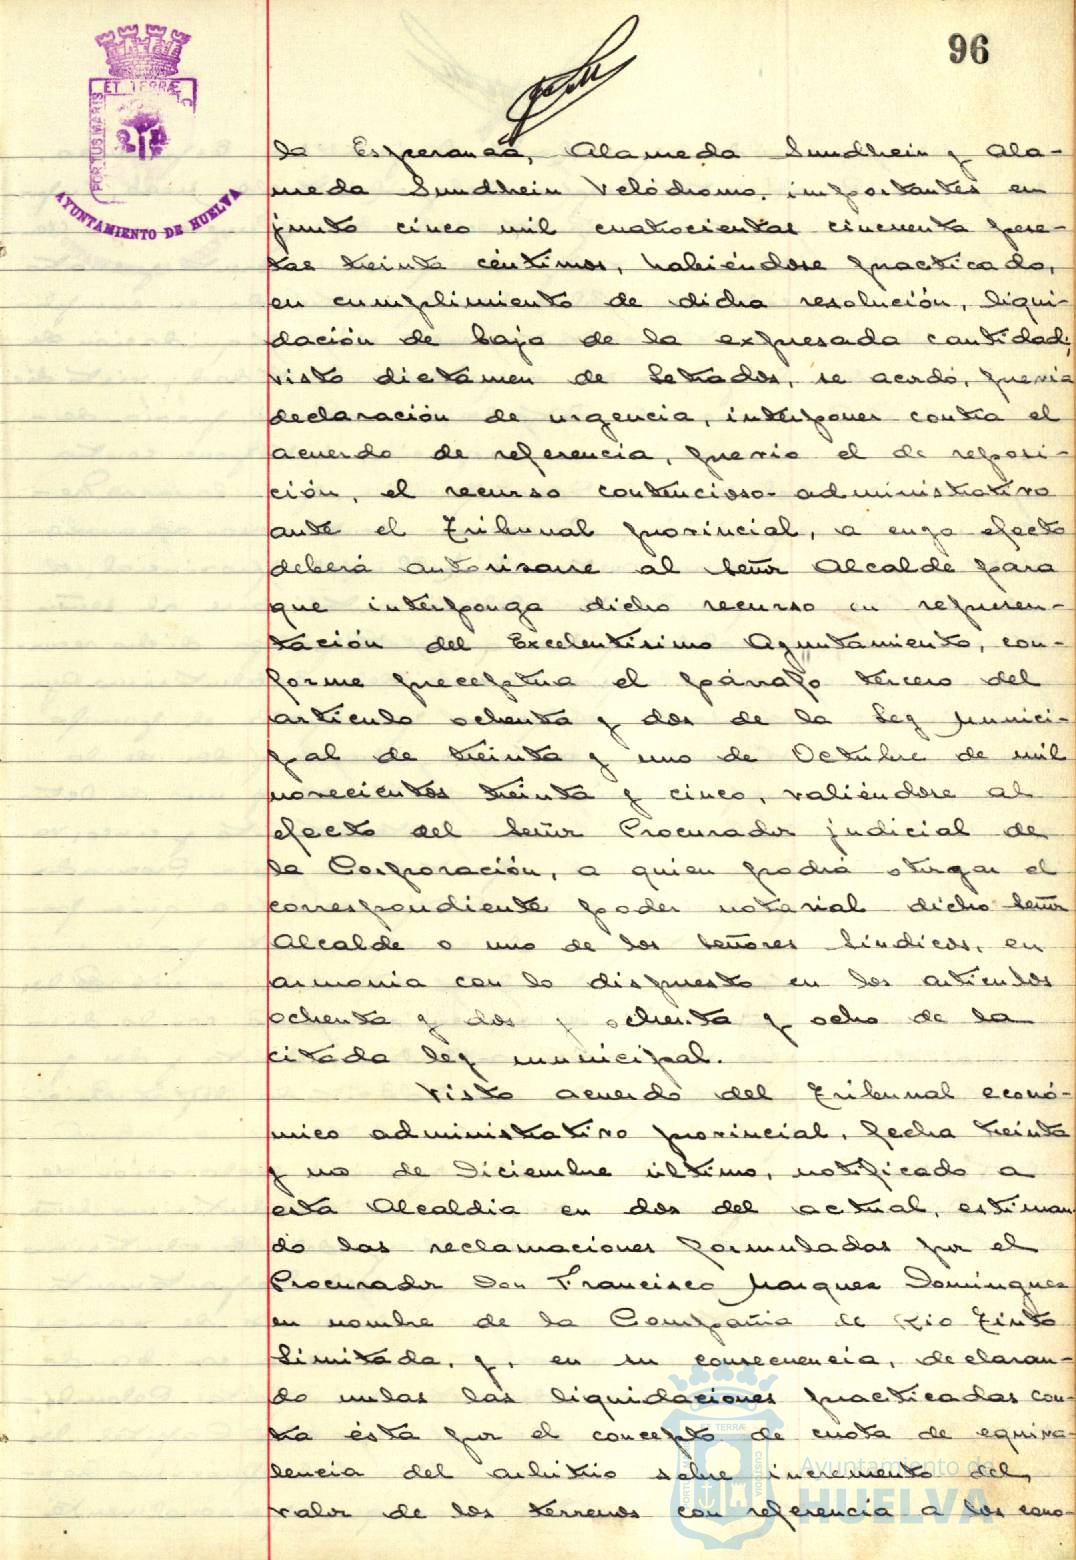 96
ET TERRÆ C
PORTUS MARIS
AYUNTAMIENTO DE HUELVA
la Esperanza, Alameda Sundhein y Ala-
meda Sundhein Velódromo, importantes en
junto cinco mil cuatrocientas cincuenta pese-
tas treinta céntimos, habiéndose practicado,
en cumplimiento de dicha resolución, liqui-
dación de baja de la expresada cantidad;
visto dictamen de Letrados, se acordó, previa
declaración de urgencia, interponer contra el
acuerdo de referencia, previo el de reposi-
ción, el recurso contencioso-administrativo
ante el Tribunal provincial, a cuyo efecto
deberá autorisarse al Señor Alcalde para
que interponga dicho recurso en represen-
tación del Excelentísimo Ayuntamiento, con-
forme preceptua el párrafo tercero del
artículo ochenta y dos de la Ley Munici-
pal de treinta y uno de Octubre de mil
novecientos treinta y cinco, valiéndose al
efecto del Señor Procurador judicial de
la Corporación, a quien podrá otorgar el
correspondiente poder notarial dicho Señor
Alcalde o uno de los Señores Síndicos, en
armonia con lo dispuesto en los artículos
ochenta y dos y ochenta y ocho de la
citada ley municipal.
Visto acuerdo del Tribunal econó-
mico administrativo provincial, fecha treinta
y uno de Diciembre último, notificado a
esta Alcaldia en dos del actual, estiman
do las reclamaciones formuladas por el
Procurador Don Francisco Marquez Dominguez
en nombre de la Compañia de Rio Tinto
Limitada, y, en su consecuencia, declaran-
do nulas las liquidaciones practicadas con-
tra ésta por el concepto de cuota de equiva-
lencia del arbitrio sobre incremento del
valor de los terrenos con referencia a los cono-
ET TERRÆ
PORTUS MARIS
CUSTODIA
Ayuntamiento de
HUELVA